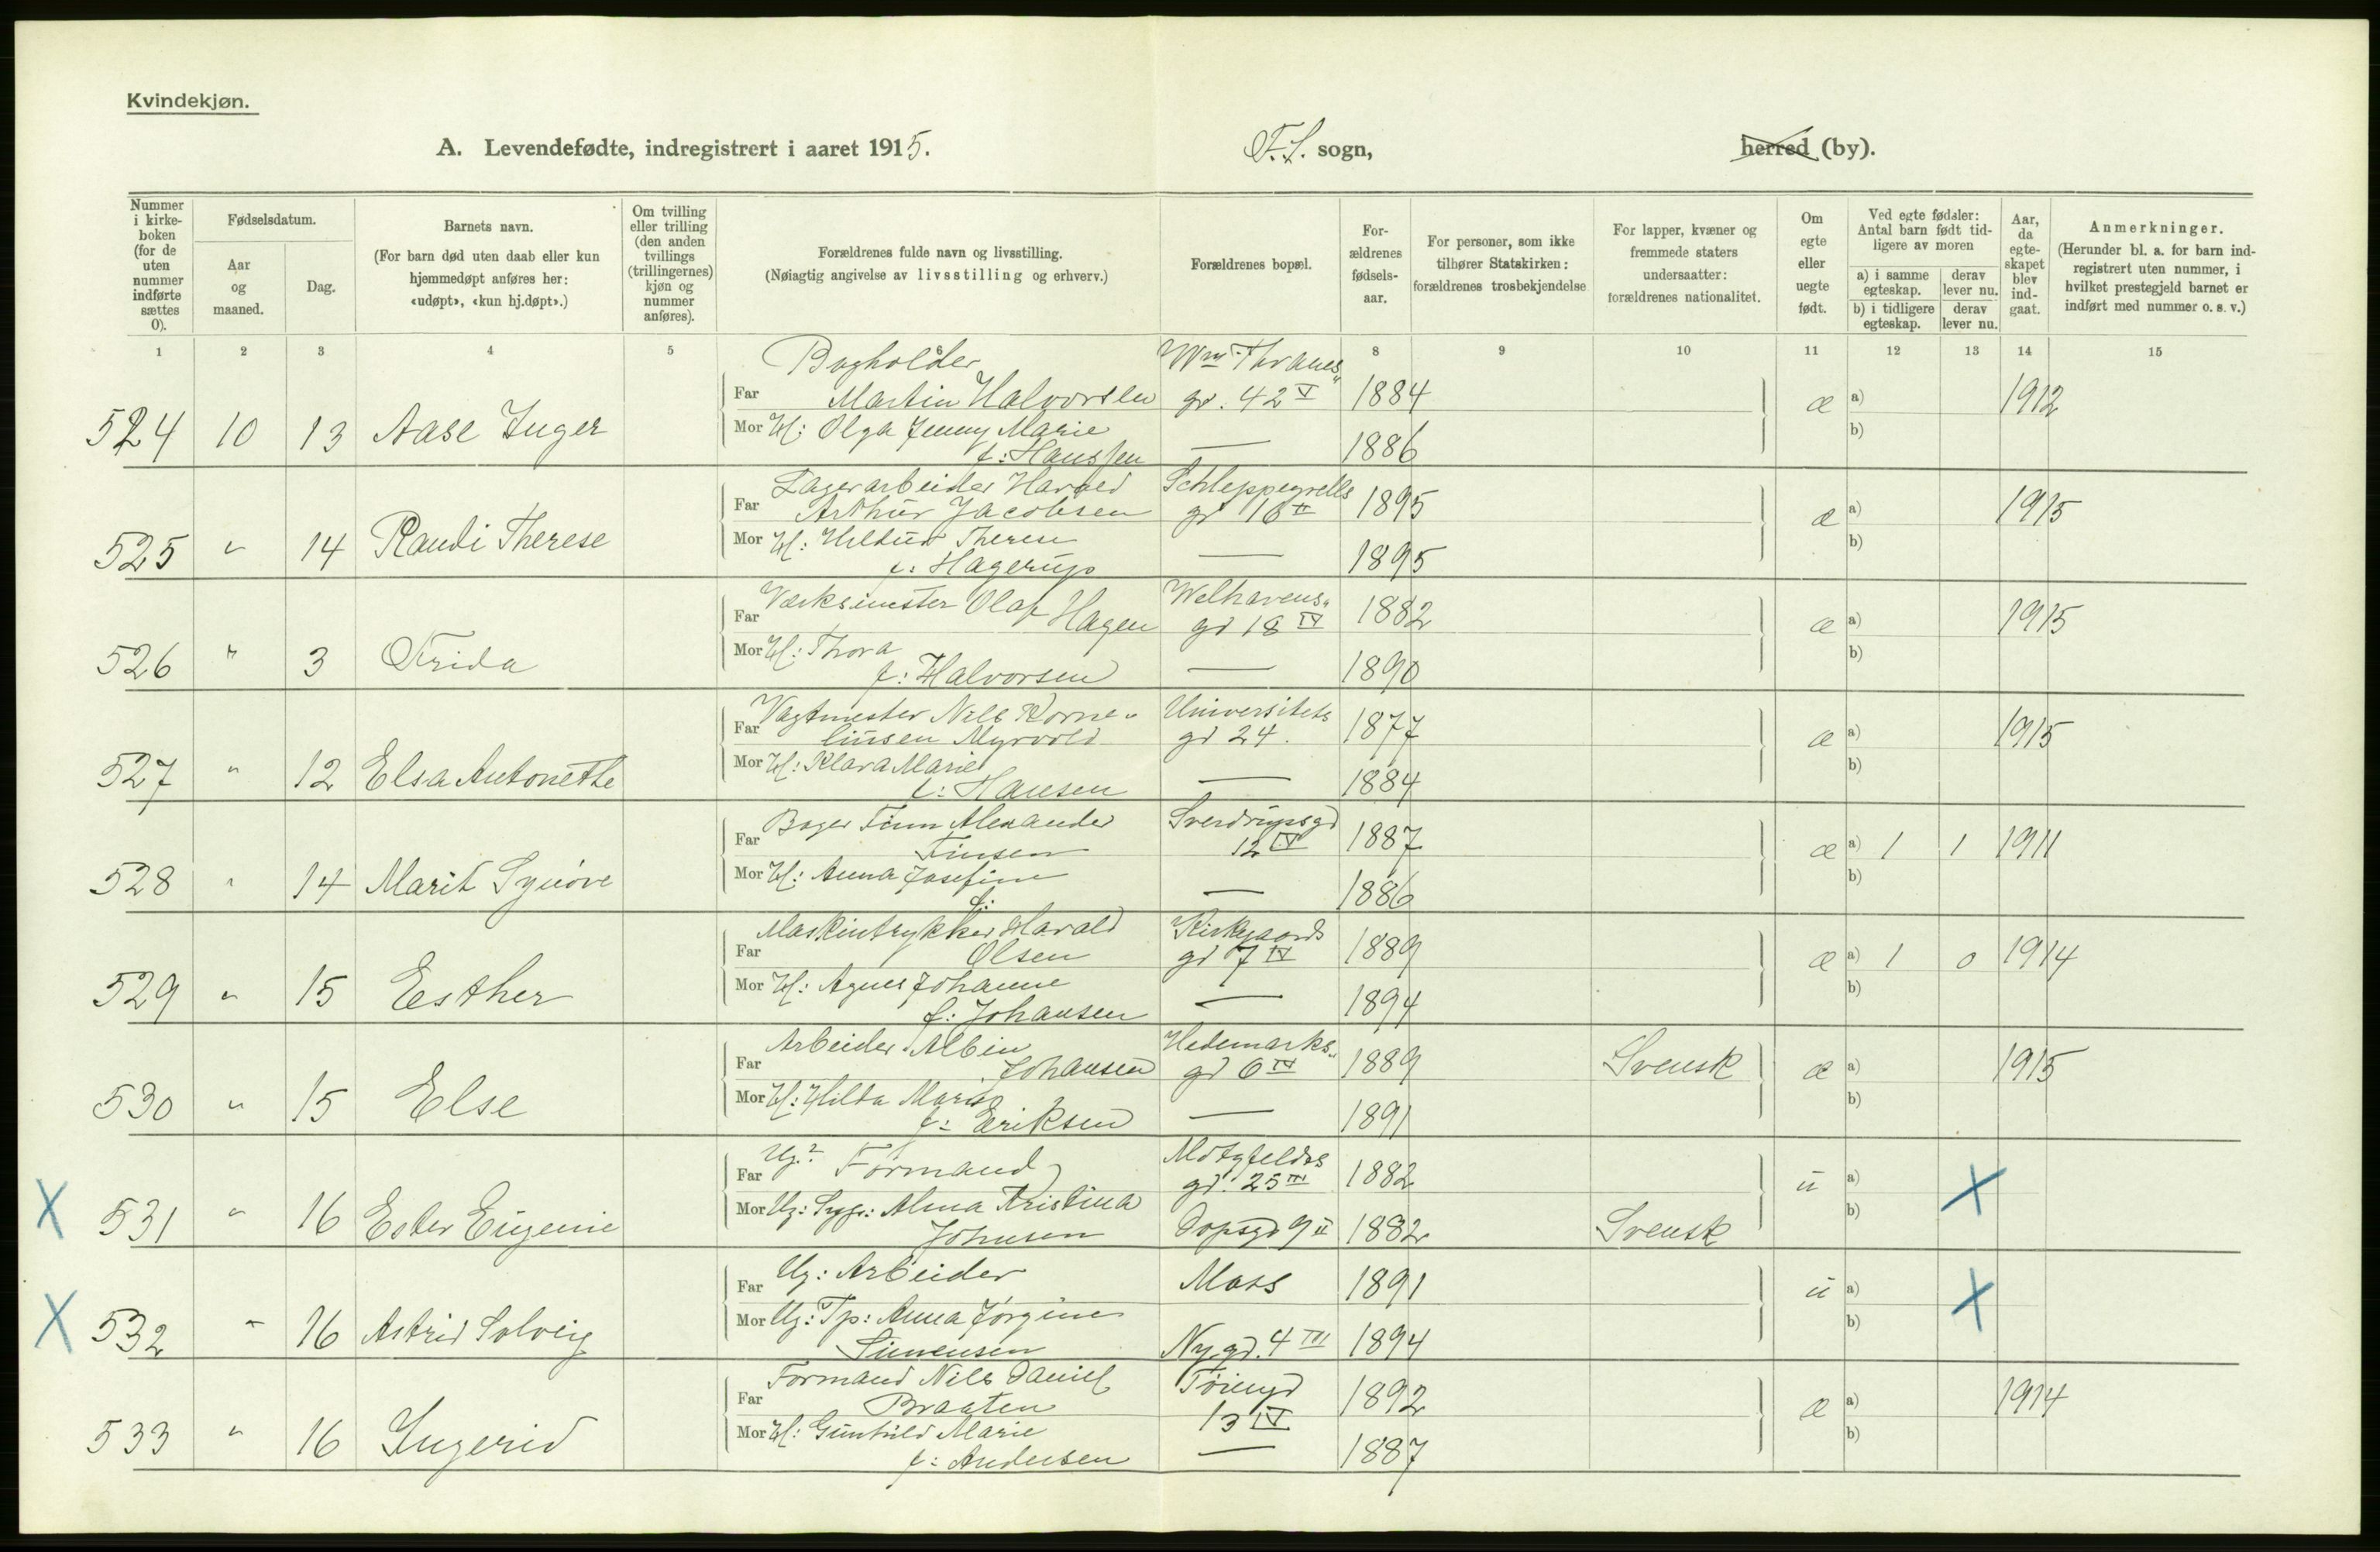 Kvindekjøn.
A. Levendefødte, indregistrert i aaret 1915.
F. S. sogn,
herred (by).
Nummer i kirkeboken (for de uten nummer indførte sættes 0).
Fødselsdatum.
Aar og maaned.
Dag.
Barnets navn.
(For barn død uten daab eller kun hjemmedøpt anføres her: «udøpt», «kun hj.døpt».)
Om tvilling eller trilling (den anden tvillings (trillingernes) kjøn og nummer anføres).
Forældrenes fulde navn og livsstilling.
(Nøiagtig angivelse av livsstilling og erhverv.)
Forældrenes bopæl.
Forældrenes fødselsaar.
For personer, som ikke tilhører Statskirken: forældrenes trosbekjendelse
For lapper, kvæner og fremmede staters undersaatter: forældrenes nationalitet.
Om egte eller uegte født.
Ved egte fødsler: Antal barn født tidligere av moren
a) i samme egteskap.
derav lever nu.
b) i tidligere egteskap.
derav lever nu.
Aar, da egteskapet blev indgaat.
Anmerkninger.
(Herunder bl. a. for barn indregistrert uten nummer, i hvilket prestegjeld barnet er indført med nummer o. s. v.)
1 2 3 4 5 8 9 10 11 12 13 14 15
Bogholder Wm Thranes"
Far Martin Halvorsen gd. 42 V 1884
524 10 13 Aase Inger æ a) 1912
Mor H: Olga Jenny Marie b)
f: Hanssen — 1886
Lagerarbeider Harald Schleppegrells
Far Arthur Jacobsen gd 16 II 1895
525 " 14 Randi Therese æ a) 1915
Mor H: Hildur Therese b)
f: Hagerup — 1895
Værksmester Olaf Welhavens"
Far Hagen gd 18 IV 1882
526 " 3 Frida æ a) 1915
Mor H: Thora b)
f: Halvorsen — 1890
Vagtmester Nils Korne" Universitets
Far liusen Myrvold gd 24. 1877
527 " 12 Elsa Antonette æ a) 1915
Mor H: Klara Marie b)
f: Hansen — 1884
Bager Finn Alexander Sverdrupsgd
Far Finsen 12 IV 1887
528 " 14 Marit Synøve æ a) 1 1 1911
Mor H: Anna Josefine b)
f: — 1886
Maskintrykker Harald Kirkegaards
Far Olsen gd 7 IV 1889
529 " 15 Esther æ a) 1 0 1914
Mor H: Agnes Johanne b)
f: Johansen — 1894
Arbeider Albin Hedemarks"
Far Johansen gd 6 IV 1889 Svensk
530 " 15 Else æ a) 1915
Mor H: Hilda Maria b)
f: Eriksen — 1891
Ug: Formand Motzfeldts
Far gd. 25 III 1882
X 531 " 16 Ester Eugenie ü a) X
Mor Ug: Sygr: Alma Kristina b)
Johnsen Dopsgd 9 II 1882 Svensk
Far Ug: Arbeider Moss 1891
X 532 " 16 Astrid Solveig ü a) X
Mor Ug: Tp: Anna Jørgine b)
Simensen Nygd. 4 III 1894
Formand Nils Daniel Tøiengd
Far Braaten 13 IV 1892
533 " 16 Ingerid æ a) 1914
Mor H: Gunhild Marie b)
f: Andersen — 1887